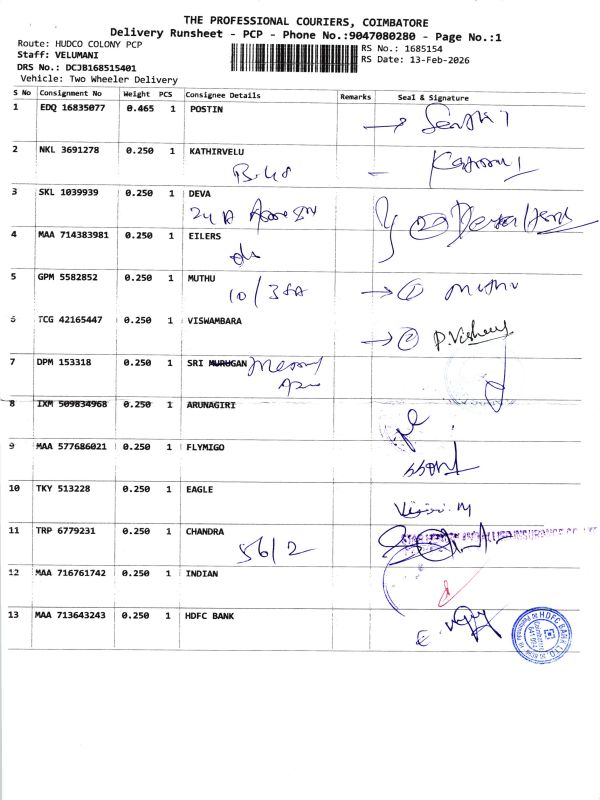 THE PROFESSIONAL COURIERS, COIMBATORE
Delivery Runsheet - PCP - Phone No.:9047080280 - Page No.:1
Route: HUDCO COLONY PCP
Staff: VELUMANI
DRS No.: DCJB168515401
Vehicle: Two Wheeler Delivery
RS No.: 1685154
RS Date: 13-Feb-2026
S No Consignment No Weight PCS Consignee Details Remarks Seal & Signature
1 EDQ 16835077 0.465 1 POSTIN
2 NKL 3691278 0.250 1 KATHIRVELU
3 SKL 1039939 0.250 1 DEVA
24 A
4 MAA 714383981 0.250 1 EILERS
5 GPM 5582852 0.250 1 MUTHU
10/38A → 1 muthu
6 TCG 42165447 0.250 1 VISWAMBARA
→ 2
7 DPM 153318 0.250 1 SRI MURUGAN
8 IXM 509834968 0.250 1 ARUNAGIRI
9 MAA 577686021 0.250 1 FLYMIGO
10 TKY 513228 0.250 1 EAGLE
11 TRP 6779231 0.250 1 CHANDRA
56/2
12 MAA 716761742 0.250 1 INDIAN
13 MAA 713643243 0.250 1 HDFC BANK
HDFC BANK LTD.